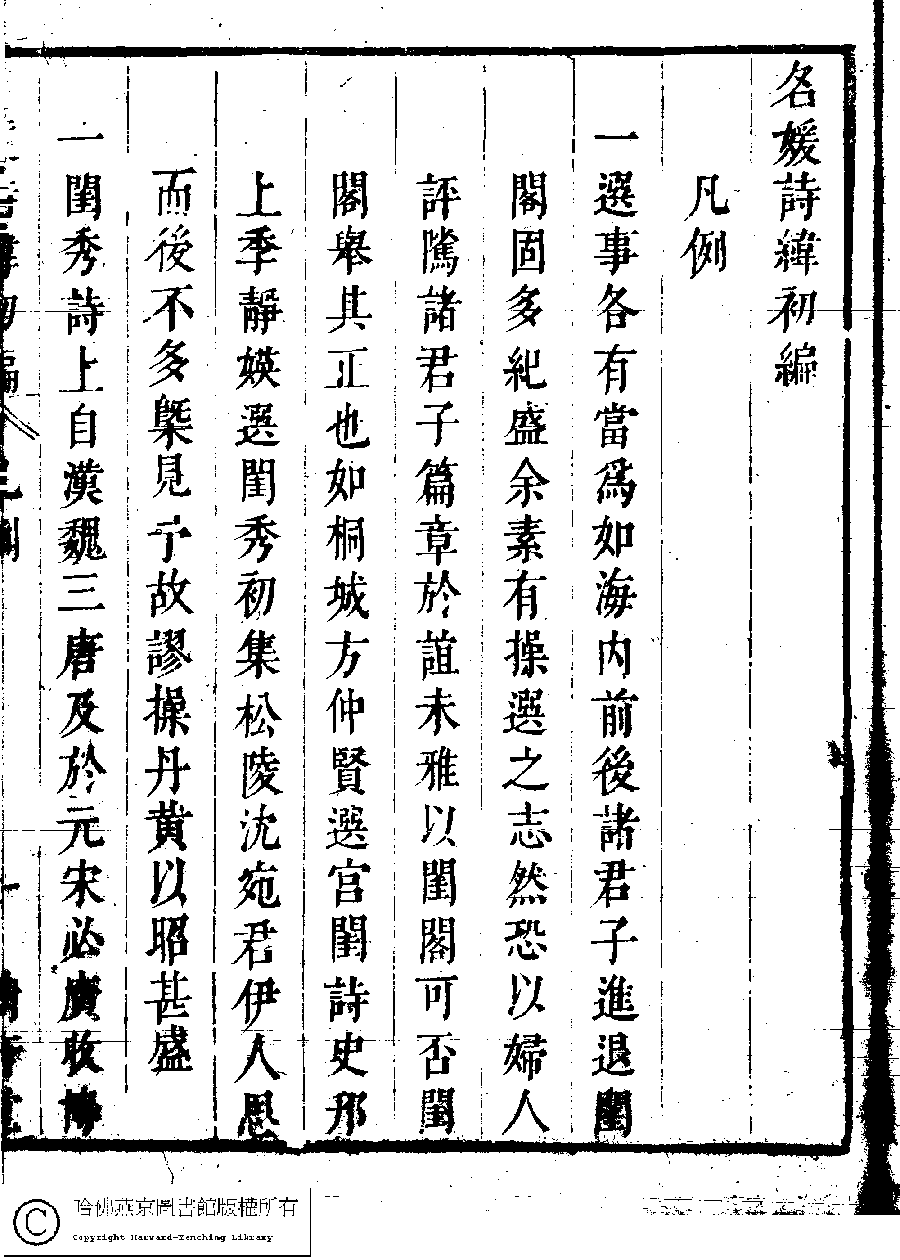 名媛詩緯初編
凡例
一選事各有當爲如海内前後諸君子進退閨
閣固多紀盛余素有操選之志然恐以婦人
評隲諸君子篇章於誼未雅以閨閣可否閨
閣舉其正也如桐城方仲賢選宫閨詩史邢
上季靜媖選閨秀初集松陵沈宛君伊人思
而後不多槩見予故謬操丹黄以昭甚盛
一閨秀詩上自漢魏三唐及於元宋必廣收博
哈佛燕京圖書館版權所有
Copyright Harvard-Yenching Library